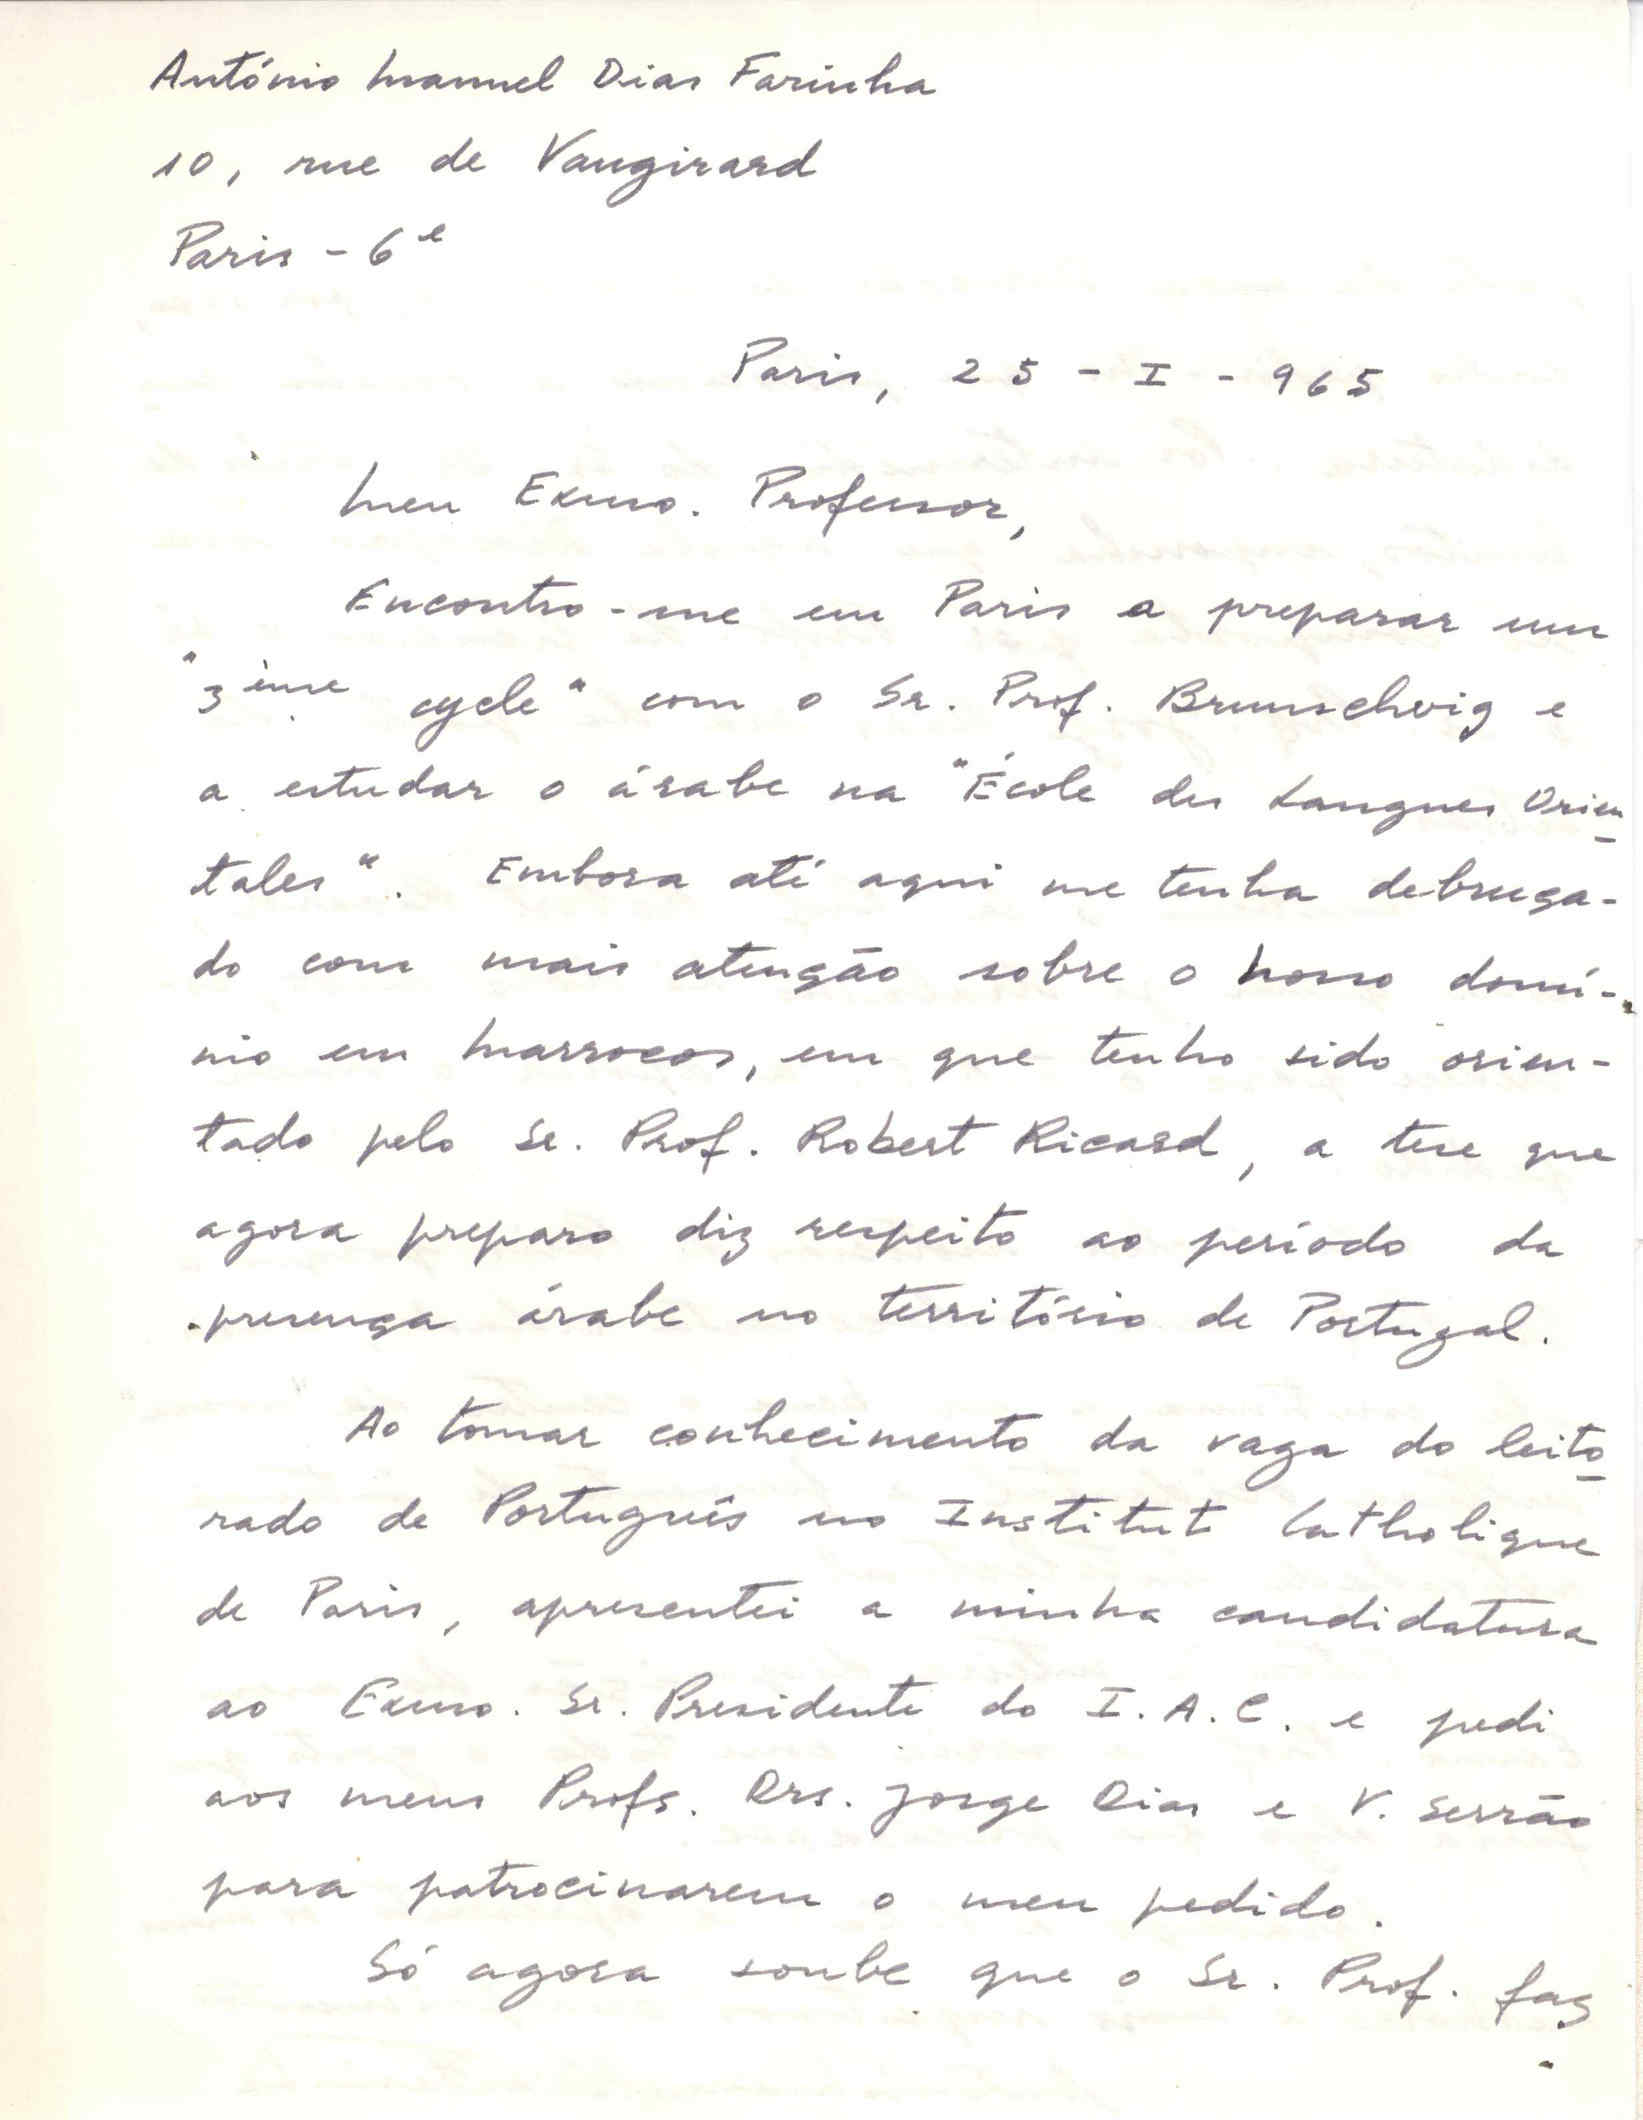 António Manuel Dias Farinha
10, rue de Vaugirard
Paris - 6e
Paris, 25 - I - 965
Meu Exmo. Professor,
Encontro-me em Paris a preparar um
"3ème cycle" com o Sr. Prof. Brunschvig e
a estudar o árabe na "École des Langues Orien
tales". Embora até aqui me tenha debruça-
do com mais atenção sobre o nosso domí-
nio em Marrocos, em que tenho sido orien-
tado pelo Sr. Prof. Robert Ricard, a tese que
agora preparo diz respeito ao período da
presença árabe no território de Portugal.
Ao tomar conhecimento da vaga do leito
rado de Português no Institut Catholique
de Paris, apresentei a minha candidatura
ao Exmo. Sr. Presidente do I.A.C. e pedi
aos meus Profs. Drs. Jorge Dias e V. Serrão
para patrocinarem o meu pedido.
Só agora soube que o Sr. Prof. faz